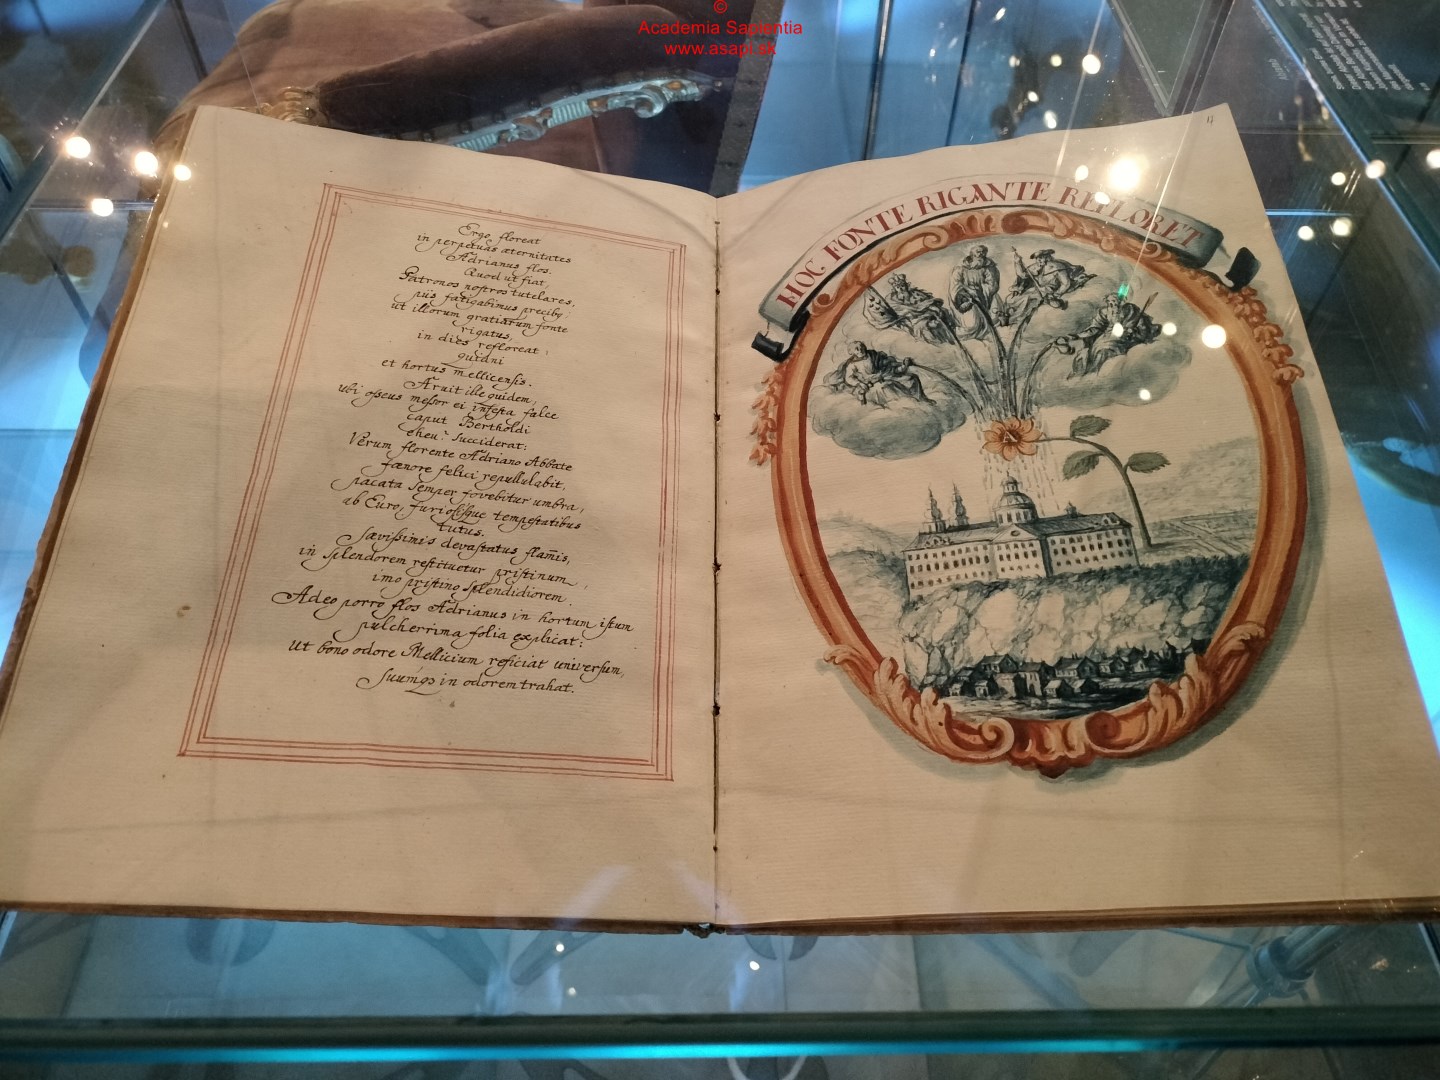 ©
Academia Sapientia
www.asapi.sk
Ergo floreat
in perpetuas æternitates
Adrianus flos.
Quod ut fiat,
Patronos nostros tutelares,
piis fatigabimus precibq;
ut illorum gratiarum fonte
rigatus,
in dies refloreat:
quidni
et hortus mellicensis.
Aruit ille quidem,
ubi osseus messor ei infesta falce
caput Bertholdi
eheu! succiderat:
Verum florente Adriano Abbate
fœnore felici repullulabit,
pacata semper fovebitur umbra,
ab Euro, furiosisque tempestatibus
tutus.
Sævissimis devastatus flam̄is,
in splendorem restituetur pristinum,
imo pristino splendidiorem.
Adeo porro flos Adrianus in hortum istum
pulcherrima folia explicat:
Ut bono odore Mellicium reficiat universum,
Suumq3 in odorem trahat.
HOC FONTE RIGANTE REFLORET
A